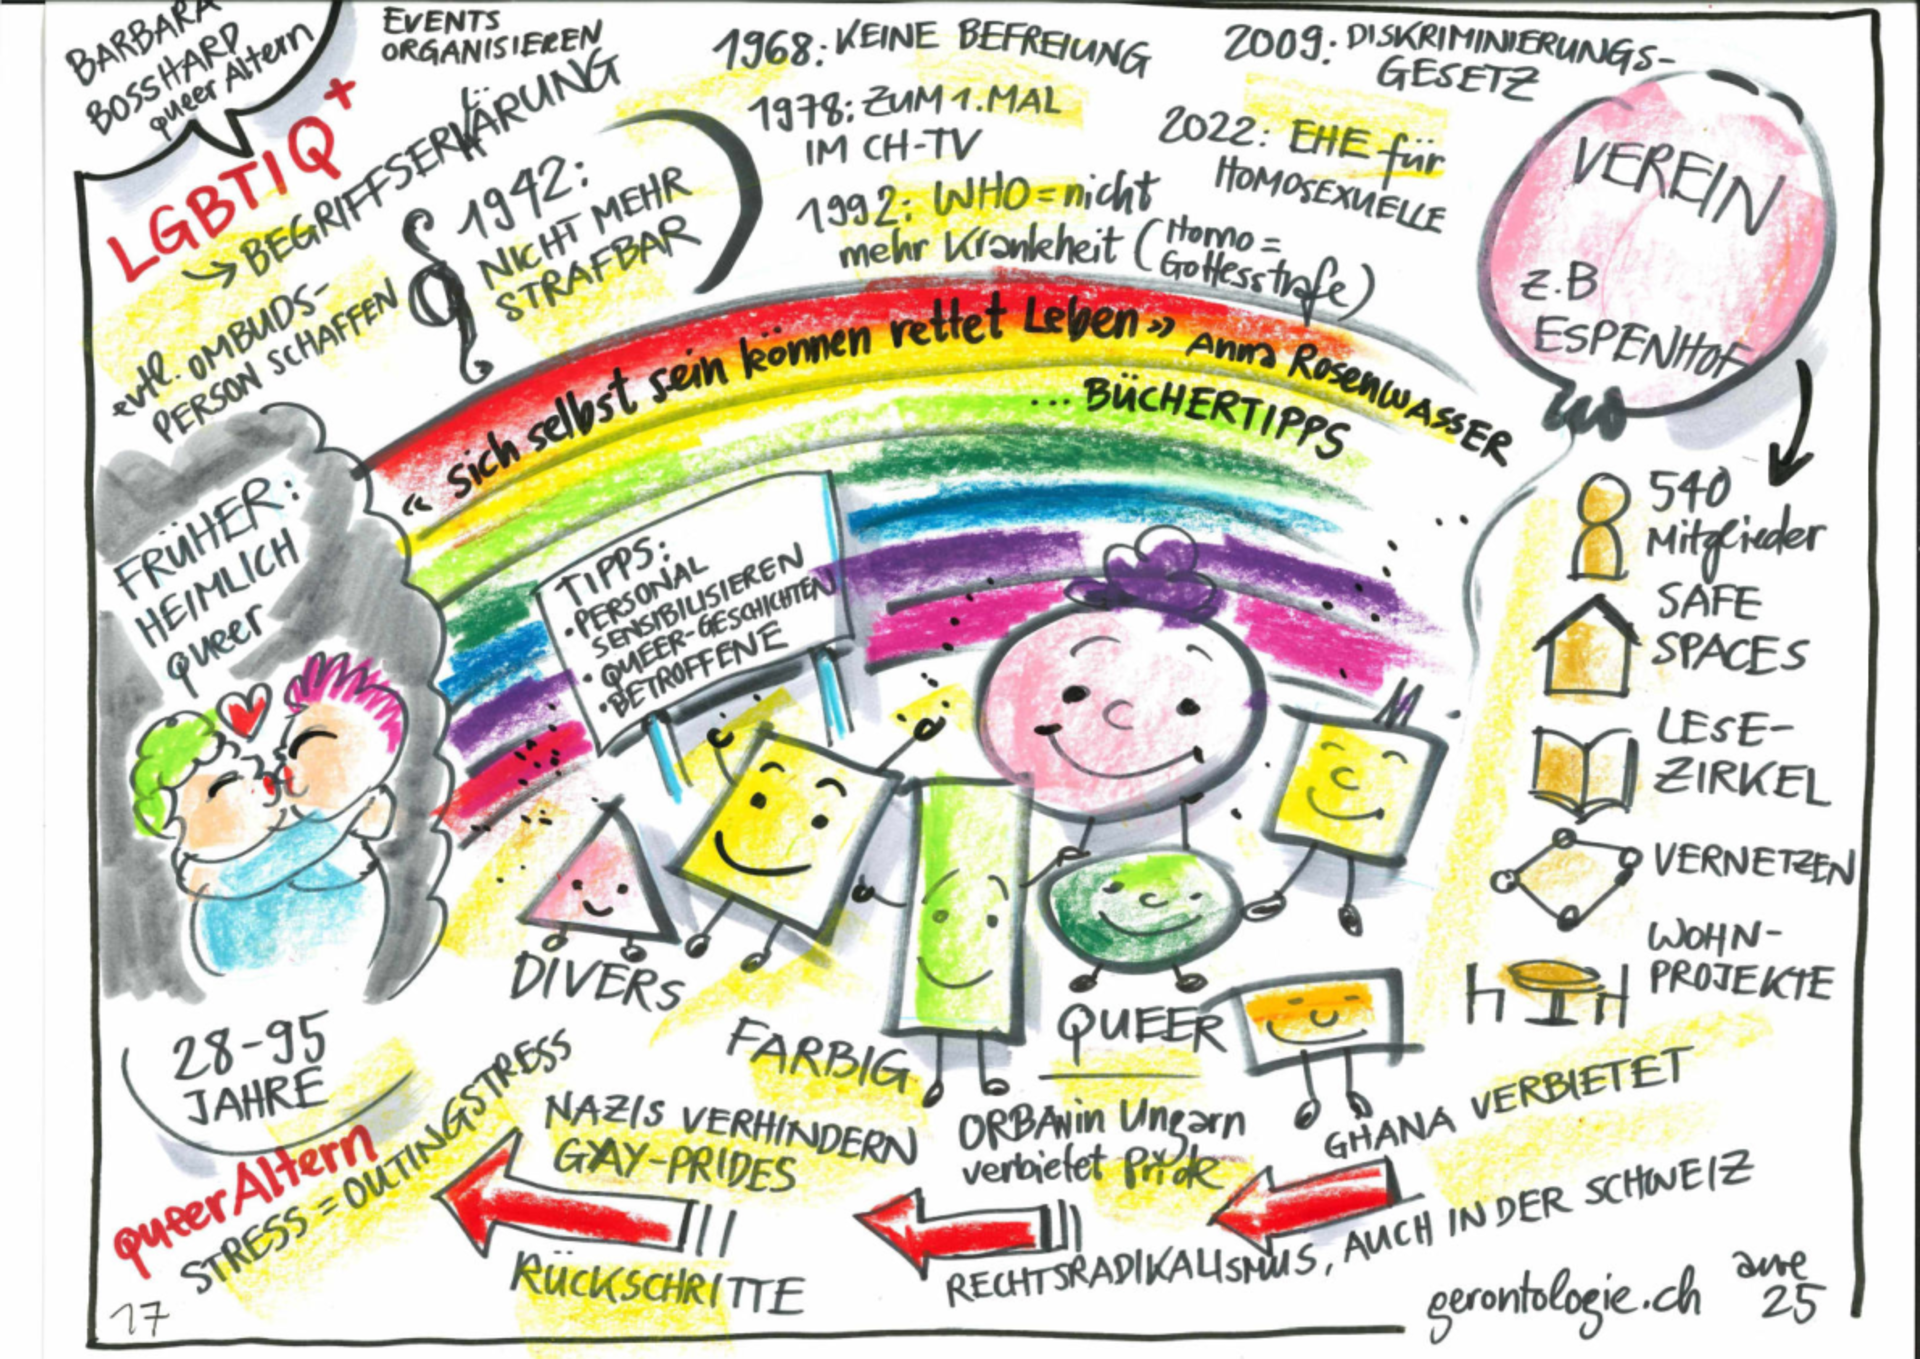 BARBARA
BOSSHARD
queer Altern
EVENTS
ORGANISIEREN
LGBTIQ+
→ BEGRIFFSERKLÄRUNG
evtl. OMBUDS-
PERSON SCHAFFEN
§ 1942:
NICHT MEHR
STRAFBAR
1968: KEINE BEFREIUNG
1978: ZUM 1. MAL
IM CH-TV
1992: WHO = nicht
mehr Krankheit (Homo =
Gottesstrafe)
2009: DISKRIMINIERUNGS-
GESETZ
2022: EHE für
HOMOSEXUELLE
VEREIN
z.B
ESPENHOF
« sich selbst sein können rettet Leben » Anna Rosenwasser
... BÜCHERTIPPS
FRÜHER:
HEIMLICH
queer
TIPPS:
• PERSONAL
SENSIBILISIEREN
• QUEER-GESCHICHTEN
• BETROFFENE
540
Mitglieder
SAFE
SPACES
LESE-
ZIRKEL
VERNETZEN
WOHN-
PROJEKTE
DIVERS
FARBIG
QUEER
28-95
JAHRE
queerAltern
STRESS = OUTINGSTRESS
NAZIS VERHINDERN
GAY-PRIDES
ORBAN in Ungarn
verbietet Pride
GHANA VERBIETET
RÜCKSCHRITTE
RECHTSRADIKALISMUS, AUCH IN DER SCHWEIZ
gerontologie.ch
25
17